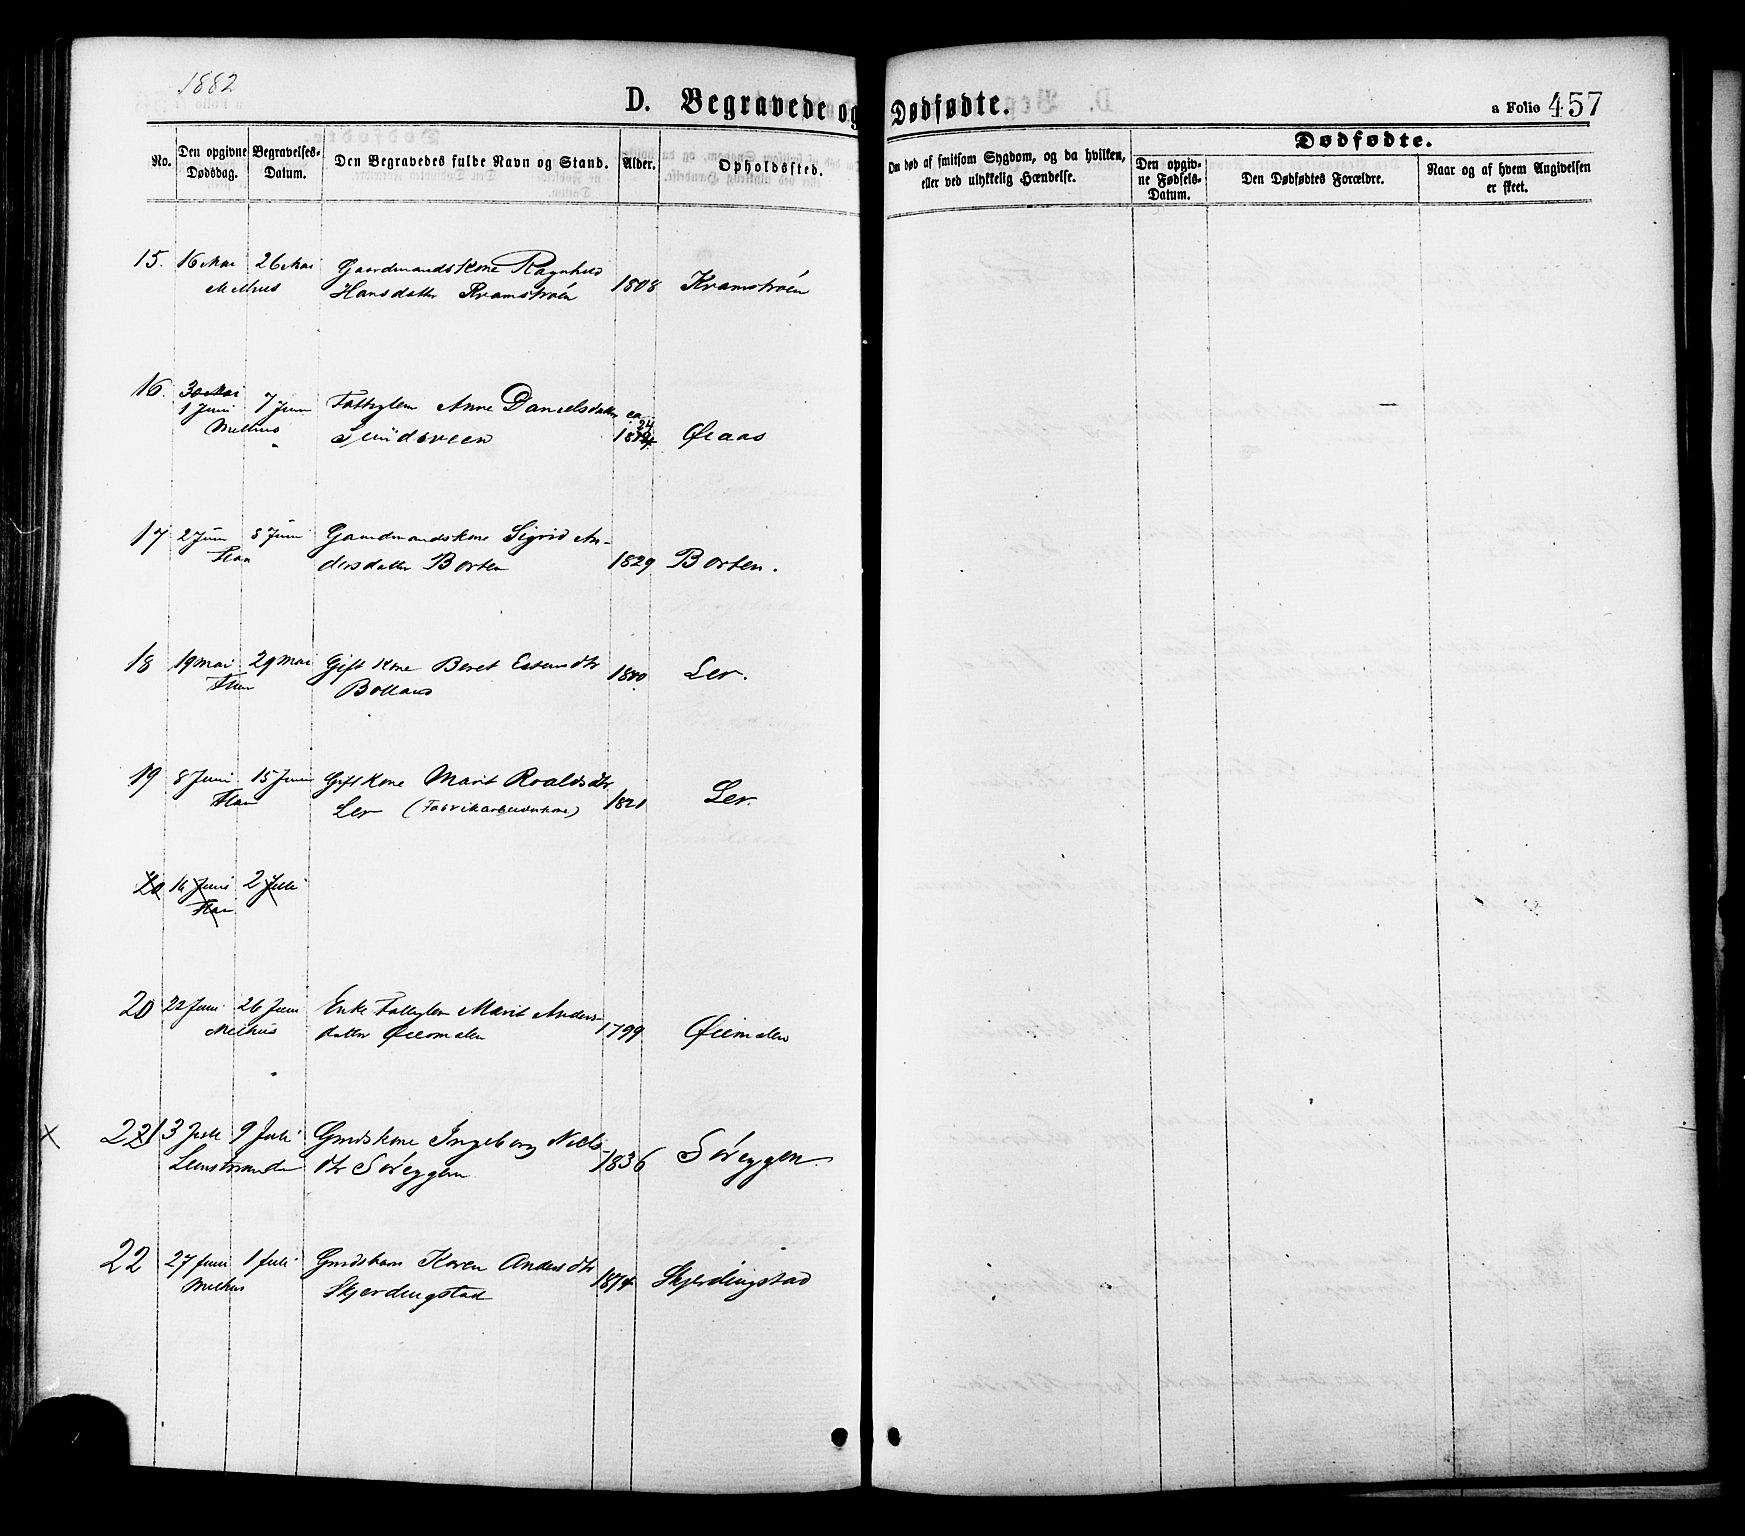 1882
D. Begravede og Dødfødte.
a Folio 457
No.
Den opgivne Dødsdag.
Begravelses-Datum.
Den Begravedes fulde Navn og Stand.
Alder.
Opholdssted.
Om død af smitsom Sygdom, og da hvilken, eller ved ulykkelig Hændelse.
Dødfødte.
Den opgivne Fødsels-Datum.
Den Dødfødtes Forældre.
Naar og af hvem Angivelsen er skeet.
15. 16 Mai 26 Mai Gaardmandskone Ragnhild
Melhus Hansdatter Kramstrøen 1808 Kramstrøen
16. 30 Mai
1 Juni 7 Juni Anne Danielsdatter ca
Melhus Øiaas
17 2 Juni 8 Juni Gaardmandskone Sigrid An-
Flaa dersdatter Borten 1829 Borten.
18 19 Mai 29 Mai Gift Kone Beret Estensdtr
Flaa 1810 Ler.
19 8 Juni 15 Juni Gift Kone Marit Roaldsdtr
Flaa Ler (Fabrikarbeiderkone) 1821 Ler.
20 16 Juni 2 Juli
Flaa
20 22 Juni 26 Juni Enke Marit Anders-
Melhus datter Øiemalen 1799 Øiemalen
x 221 3 Juli 9 Juli Gmdskone Ingeborg Niels-
Leinstranden dtr Søreggen 1836 Søreggen.
22 27 Juni 1 Juli Gmdsbarn Karen Andersdtr
Melhus Skjerdingstad 1874 Skjerdingstad